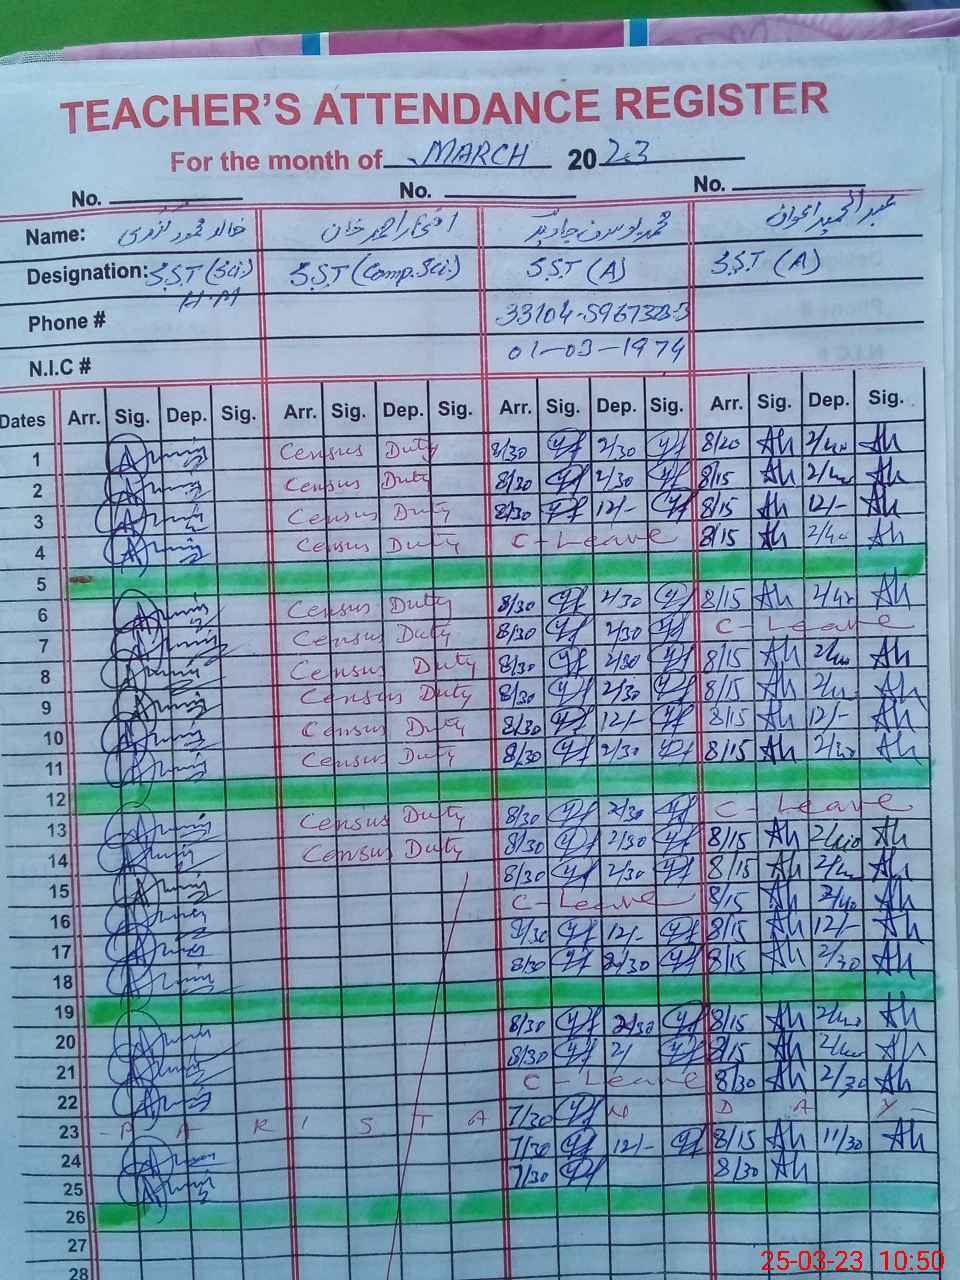 TEACHER'S ATTENDANCE REGISTER
For the month of MARCH 2023
No. No. No.
Name: افتخار احمد خان محمد یوسف جاوید عبدالحمید اعوان
Designation: S.S.T (Sci.) S.S.T (Comp. Sci.) S.S.T (A) S.S.T (A)
H.M
Phone #
N.I.C # 01-03-1974
Dates Arr. Sig. Dep. Sig. Arr. Sig. Dep. Sig. Arr. Sig. Dep. Sig. Arr. Sig. Dep. Sig.
1 Census Duty 8/30 2/30 8/20 Ah 2/40 Ah
2 Census Duty 8/30 2/30 8/15 Ah 2/40 Ah
3 Census Duty 8/30 12/- 8/15 Ah 12/- Ah
4 Census Duty C-Leave 8/15 Ah 2/40 Ah
5
6 Census Duty 8/30 2/30 8/15 Ah 2/40 Ah
7 Census Duty 8/30 2/30 C-Leave
8 Census Duty 8/30 2/30 8/15 Ah 2/40 Ah
9 Census Duty 8/30 2/30 8/15 Ah Ah
10 Census Duty 8/30 12/- 8/15 Ah 12/- Ah
11 Census Duty 8/30 2/30 8/15 Ah 2/40 Ah
12
13 Census Duty 8/30 2/30 C-Leave
14 Census Duty 8/30 2/30 8/15 Ah 2/40 Ah
15 8/30 2/30 8/15 Ah 2/40 Ah
16 C-Leave 8/15 Ah 2/40 Ah
17 8/30 12/- 8/15 Ah 12/- Ah
18 8/30 2/30 8/15 Ah 2/30 Ah
19
20 8/30 2/30 8/15 Ah 2/40 Ah
21 8/30 2/ 8/15 Ah 2/40 Ah
22 C-Leave 8/30 Ah 2/30 Ah
23 - P A K I S T A 7/30 N D A Y -
24 7/30 12/- 8/15 Ah 11/30 Ah
25 7/30 8/30 Ah
26
27
28
25-03-23 10:50